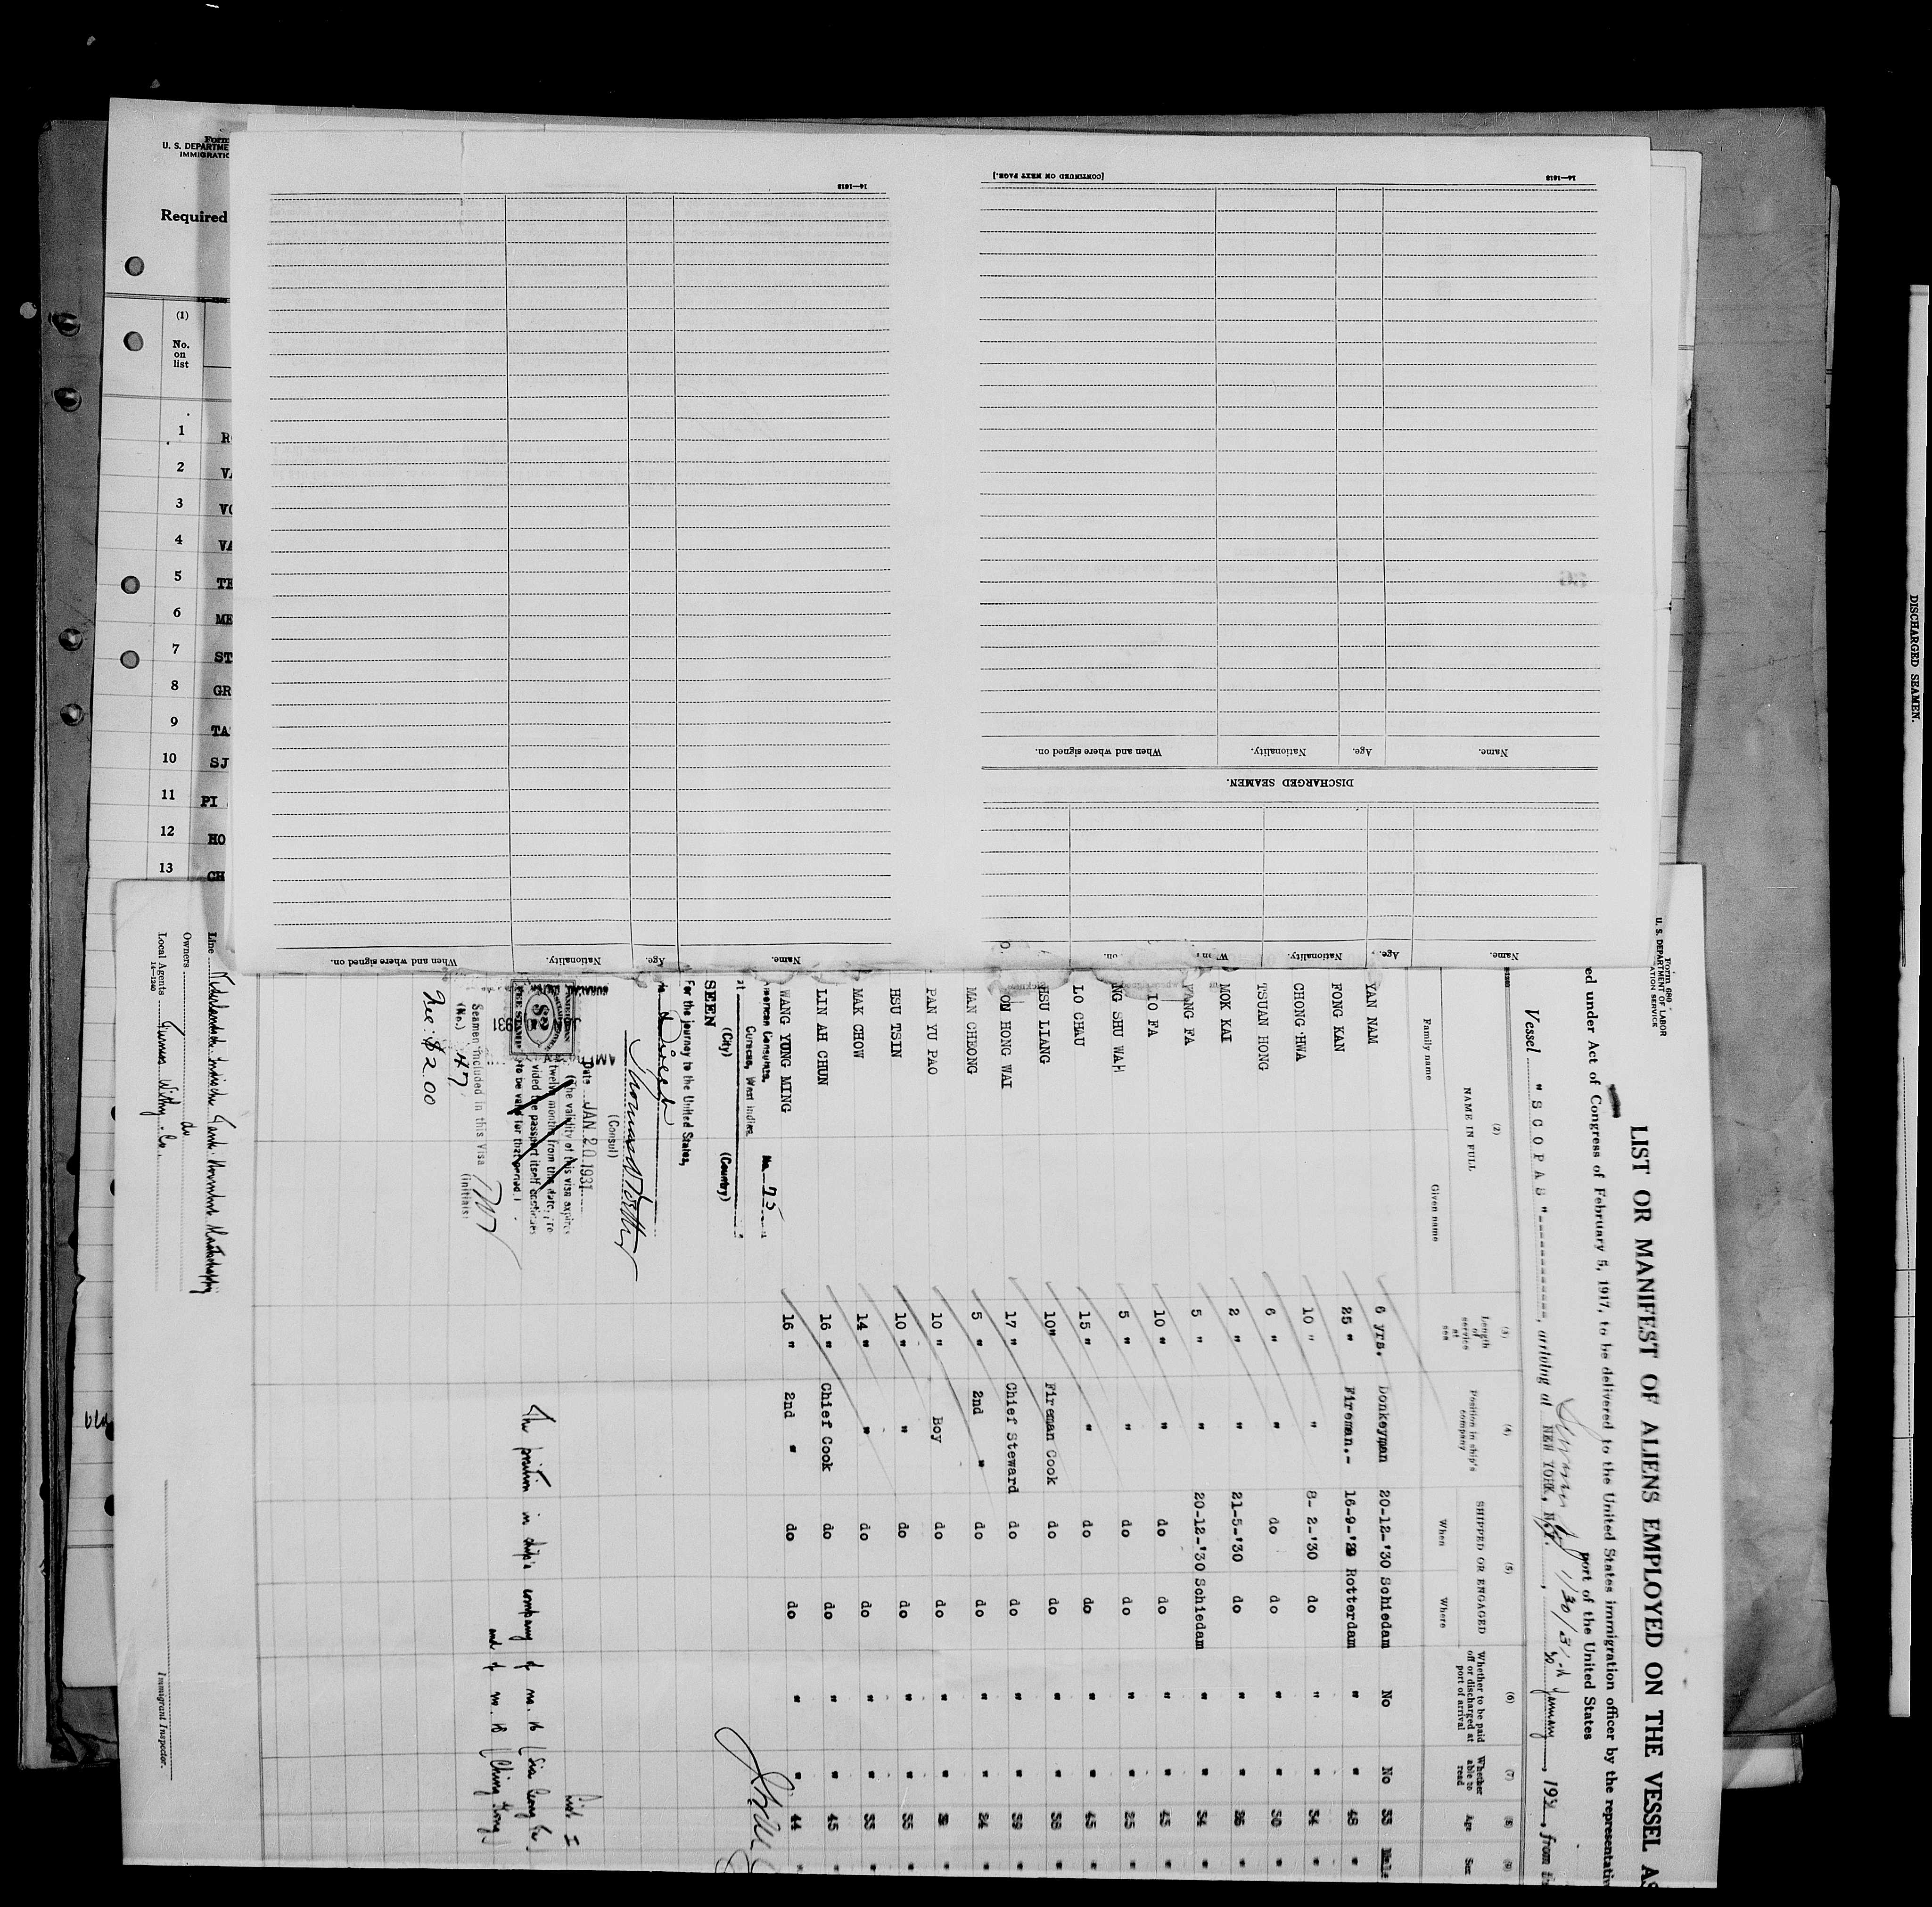 Form
U. S. DEPARTME
IMMIGRATIO
Required
(1)
No.
on
list
1 R
2 VA
3 VO
4 VA
5 TE
6 ME
7 ST
8 GR
9 TA
10 SJ
11 PI
12 HO
13 CH
14—1618
[CONTINUED ON NEXT PAGE.]
14—1618
Name. Age. Nationality. When and where signed on.
DISCHARGED SEAMEN.
Name. Age. Nationality. on.
Name. Age. Nationality. When and where signed on.
DISCHARGED SEAMEN.
Form 689
U. S. DEPARTMENT OF LABOR
ATION SERVICE
LIST OR MANIFEST OF ALIENS EMPLOYED ON THE VESSEL AS
ed under Act of Congress of February 5, 1917, to be delivered to the United States immigration officer by the representativ
port of the United States
Vessel "SCOPAS", arriving at NEW YORK, N.Y. 1/30/31 January, 1931, from
(2) (3) (4) (5) (6) (7) (8) (9)
NAME IN FULL
Family name Given name
Length of service at sea
Position in ship's company
SHIPPED OR ENGAGED
When Where
Whether to be paid off or discharged at port of arrival
Whether able to read
Age
Sex
YAN NAM 6 yrs. Donkeyman 20-12-'30 Schiedam No No 33 Male
FONG KAN 25 " Fireman.- 16-9-'29 Rotterdam " " 48 "
CHONG HWA 10 " " 8-2-'30 do " " 34 "
TSUAN HONG 6 " " do do " " 30 "
MOK KAI 2 " " 21-5-'30 do " " 26 "
FANG FA 5 " " 20-12-'30 Schiedam " " 34 "
IO FA 10 " " do do " " 43 "
NG SHU WAH 5 " " do do " " 25 "
LO CHAU 15 " " do do " " 45 "
HSU LIANG 10 " Fireman Cook do do " " 38 "
ON HONG WAI 17 " Chief Steward do do " " 39 "
MAN CHEONG 5 " 2nd " do do " " 24 "
PAN YU PAO 10 " Boy do do " "
HSU TSIN 10 " " do do " " 35 "
MAK CHOW 14 " " do do " " 33 "
LIN AH CHUN 16 " Chief Cook do do " " 45 "
WANG YUNG MING 16 " 2nd " do do " " 44 "
American Consulate, No. 75
Curacao, West Indies
at
(City) (Country)
SEEN
For the journey to the United States,
(Consul)
Date JAN 20 1931
(The validity of this visa expires
twelve months from this date, pro
vided the passport itself continues
to be valid for that period.)
AMERICAN
$2
FEE STAMP
JAN 20 1931
Seamen included in this Visa
(No.) 47 (Initials)
Fee: $2.00
The position in ship's company of no. 16
and of no. 18 (Ching Kong)
List I
Line Nederlandsch Indische Tank
Owners do
Local Agents Furness Withy & Co.
14—1240
Immigrant Inspector.